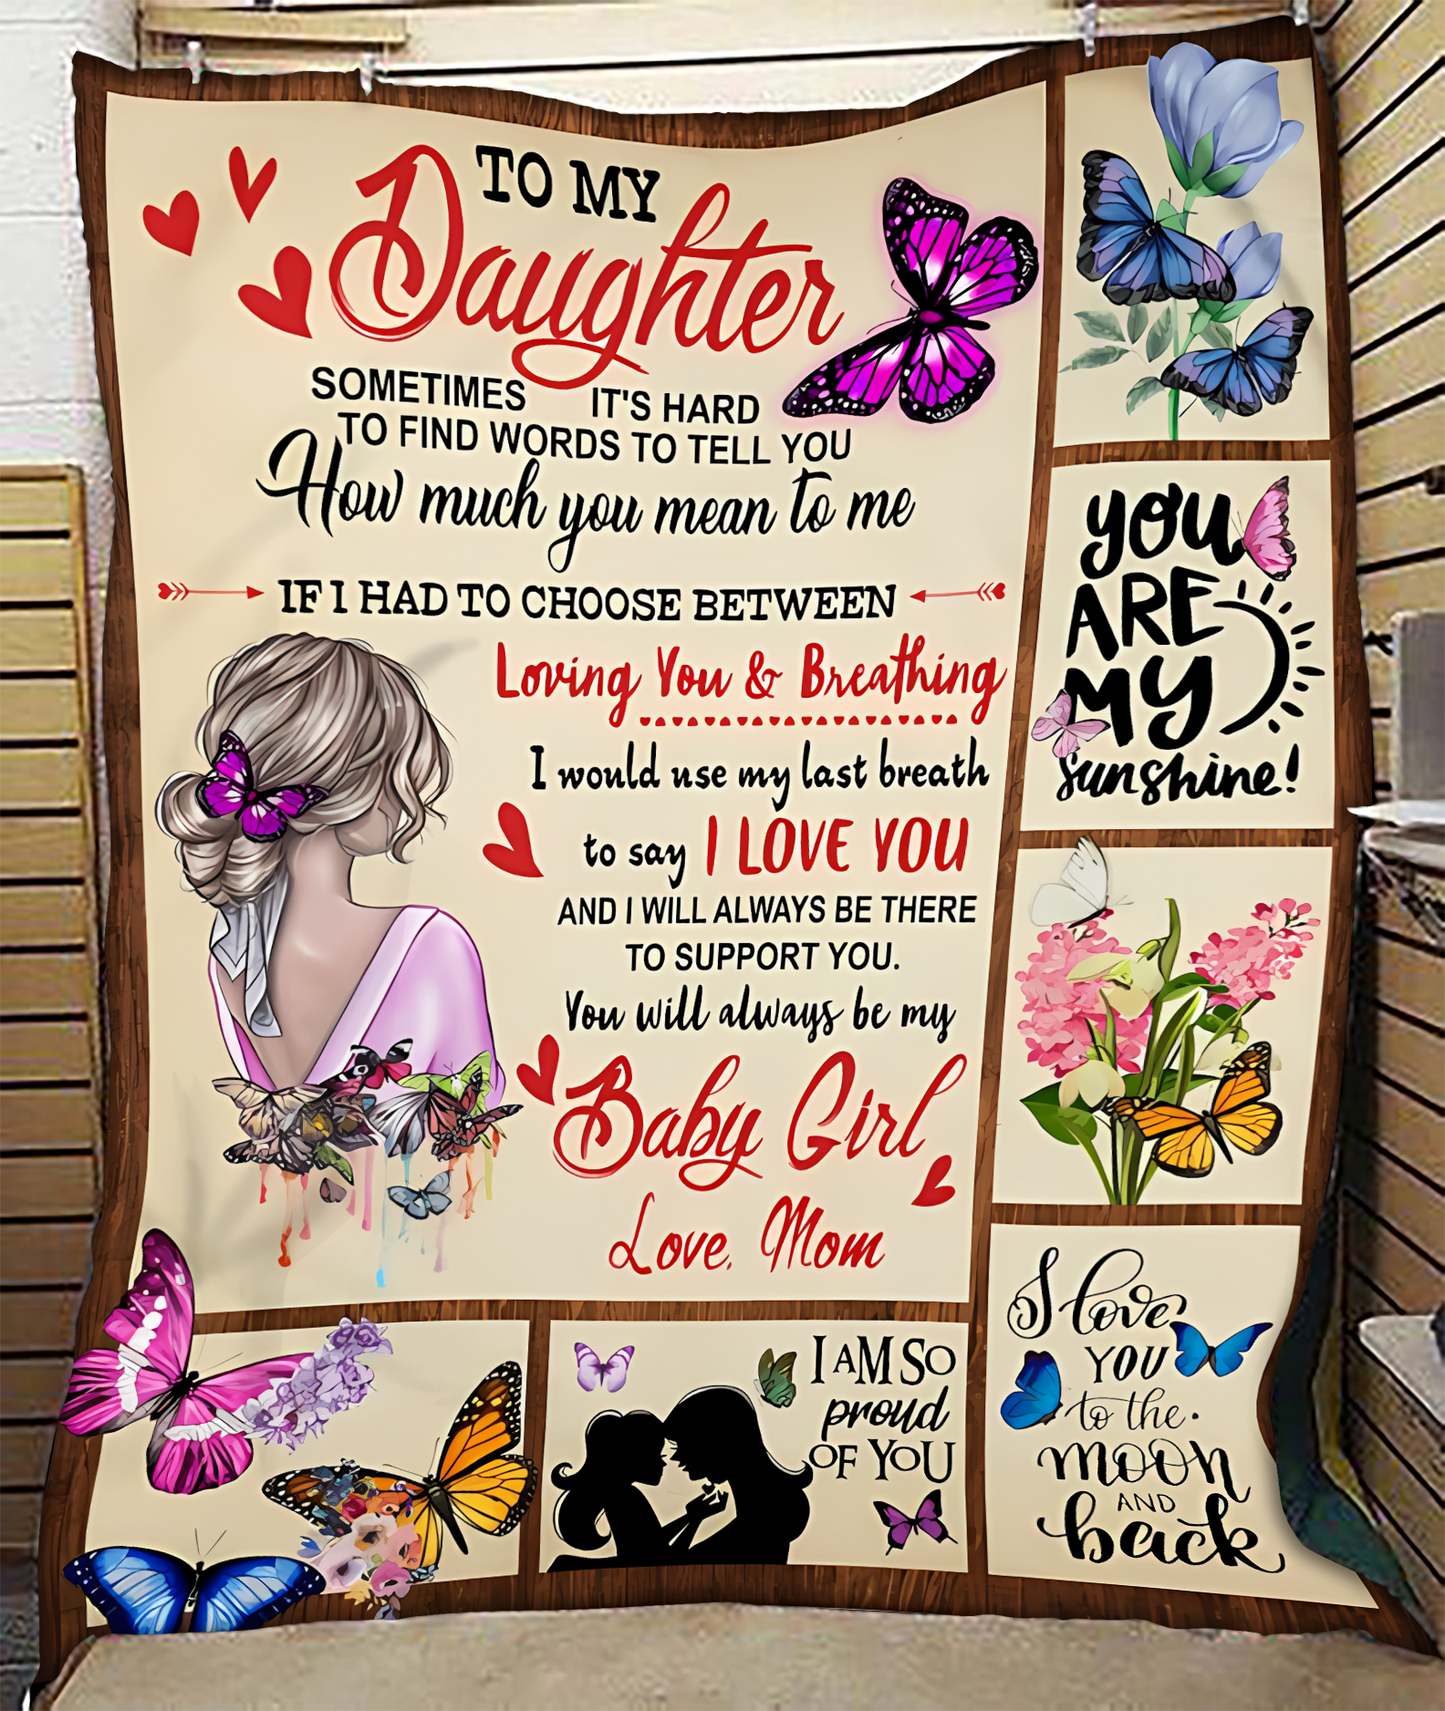 TO MY
Daughter
SOMETIMES IT'S HARD
TO FIND WORDS TO TELL YOU
How much you mean to me
IF I HAD TO CHOOSE BETWEEN
Loving You & Breathing
I would use my last breath
to say I LOVE YOU
AND I WILL ALWAYS BE THERE
TO SUPPORT YOU.
You will always be my
Baby Girl
Love, Mom
YOU
ARE
MY
sunshine!
I love
YOU
to the
moon
AND
back
I AM SO
proud
OF YOU